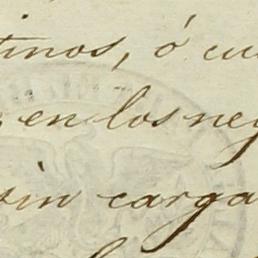 tinos, ó cu
en los neg
sin carga